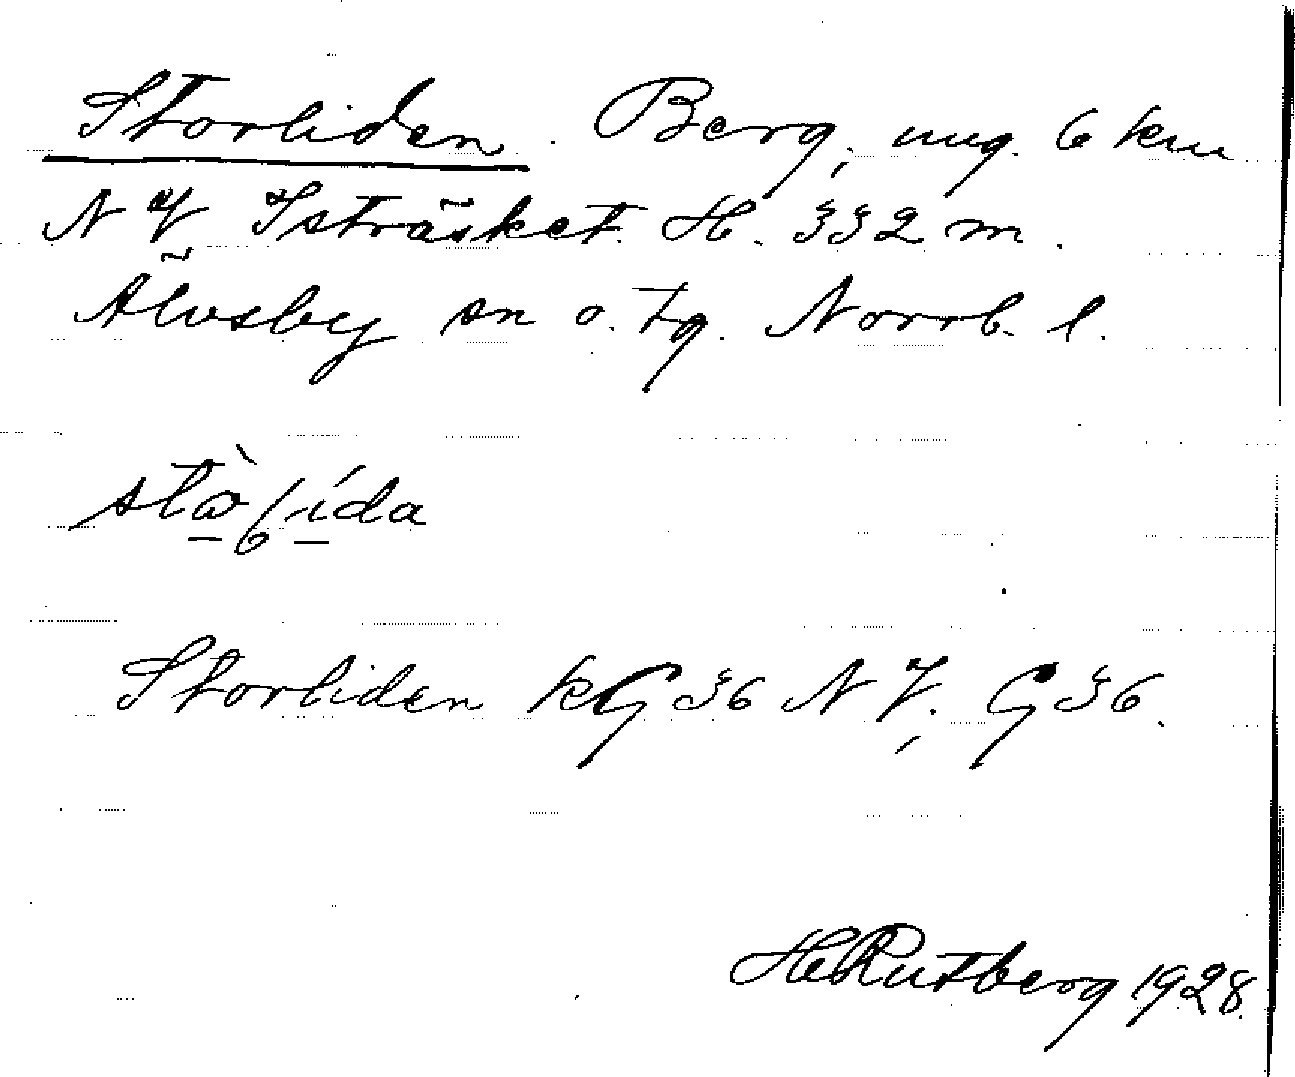 Storliden. Berg, ung. 6 km
N V Isträsket. H. 332 m.
Älvsby sn o. tg. Norrb. l.
Storliden kG 36 N V. G 36.
H Rutberg 1928.